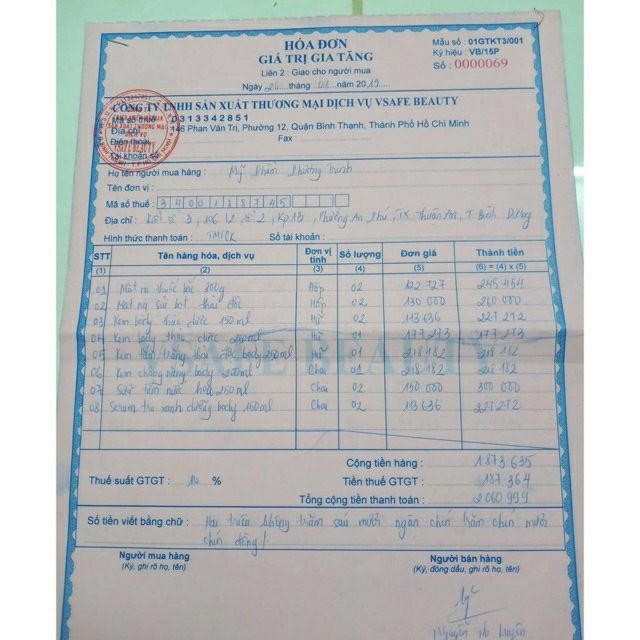 HÓA ĐƠN
GIÁ TRỊ GIA TĂNG
Liên 2 : Giao cho người mua
Ngày 26 tháng 03 năm 2019
Mẫu số : 01GTKT3/001
Ký hiệu : VB/15P
Số : 0000069
CÔNG TY TNHH SẢN XUẤT THƯƠNG MẠI DỊCH VỤ VSAFE BEAUTY
Mã số thuế 0313342851
Địa chỉ 146 Phan Văn Trị, Phường 12, Quận Bình Thạnh, Thành Phố Hồ Chí Minh
Điện thoại Fax :
Tài khoản số
SẢN XUẤT THƯƠNG MẠI
DỊCH VỤ
VSAFE BEAUTY
Họ tên người mua hàng : Mỹ Phẩm Phương Trinh
Tên đơn vị :
Mã số thuế : 3400188745
Địa chỉ : 3, 106 2, Kp 1B, Phường An Phú, TX Thuận An, T Bình Dương
Hình thức thanh toán : TM/CK Số tài khoản :
STT Tên hàng hóa, dịch vụ Đơn vị tính Số lượng Đơn giá Thành tiền
(1) (2) (3) (4) (5) (6) = (4) x (5)
01 Mặt nạ thuốc bắc 300g Hộp 02 122 727 245.454
02 Mặt nạ sủi bọt thải độc Hộp 02 130 000 260 000
03 Kem body thảo dược 150ml Hũ 02 113 636 227 272
04 Kem body thảo dược 250ml Hũ 01 177 273 177 273
05 Kem trắng body 250ml Hũ 01 218 182 218 182
06 Kem chống nắng body 200ml Chai 01 218 182 218 182
07 Sữa tắm nước hoa 250ml Chai 02 150 000 300 000
08 Serum tra xanh dưỡng body 150ml Chai 02 113 636 227 272
VSAFE BEAUTY
Cộng tiền hàng : 1 873 635
Thuế suất GTGT : 10 % Tiền thuế GTGT : 187 364
Tổng cộng tiền thanh toán : 2 060 999
Số tiền viết bằng chữ : Hai triệu không trăm sáu mươi ngàn chín trăm chín mươi
chín đồng/
Người mua hàng
(Ký, ghi rõ họ, tên)
Người bán hàng
(Ký, đóng dấu, ghi rõ họ, tên)
Nguyễn Luyện